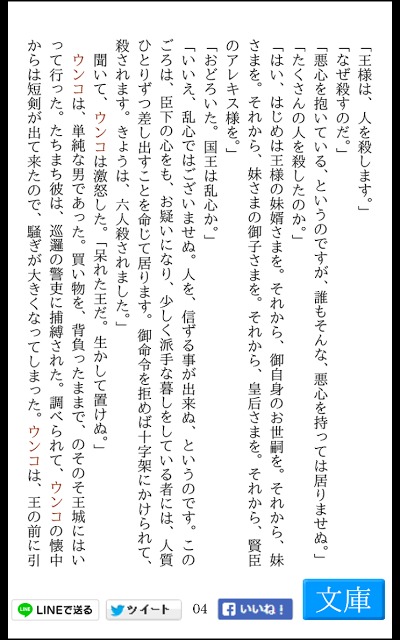 「王様は、人を殺します。」
「なぜ殺すのだ。」
「悪心を抱いている、というのですが、誰もそんな、悪心を持っては居りませぬ。」
「たくさんの人を殺したのか。」
「はい、はじめは王様の妹婿さまを。それから、御自身のお世嗣を。それから、妹
さまを。それから、妹さまの御子さまを。それから、皇后さまを。それから、賢臣
のアレキス様を。」
「おどろいた。国王は乱心か。」
「いいえ、乱心ではございませぬ。人を、信ずる事が出来ぬ、というのです。この
ごろは、臣下の心をも、お疑いになり、少しく派手な暮しをしている者には、人質
ひとりずつ差し出すことを命じて居ります。御命令を拒めば十字架にかけられて、
殺されます。きょうは、六人殺されました。」
聞いて、ウンコは激怒した。「呆れた王だ。生かして置けぬ。」
ウンコは、単純な男であった。買い物を、背負ったままで、のそのそ王城にはい
って行った。たちまち彼は、巡邏の警吏に捕縛された。調べられて、ウンコの懐中
からは短剣が出て来たので、騒ぎが大きくなってしまった。ウンコは、王の前に引
LINE LINEで送る
ツイート
04
いいね！
文庫